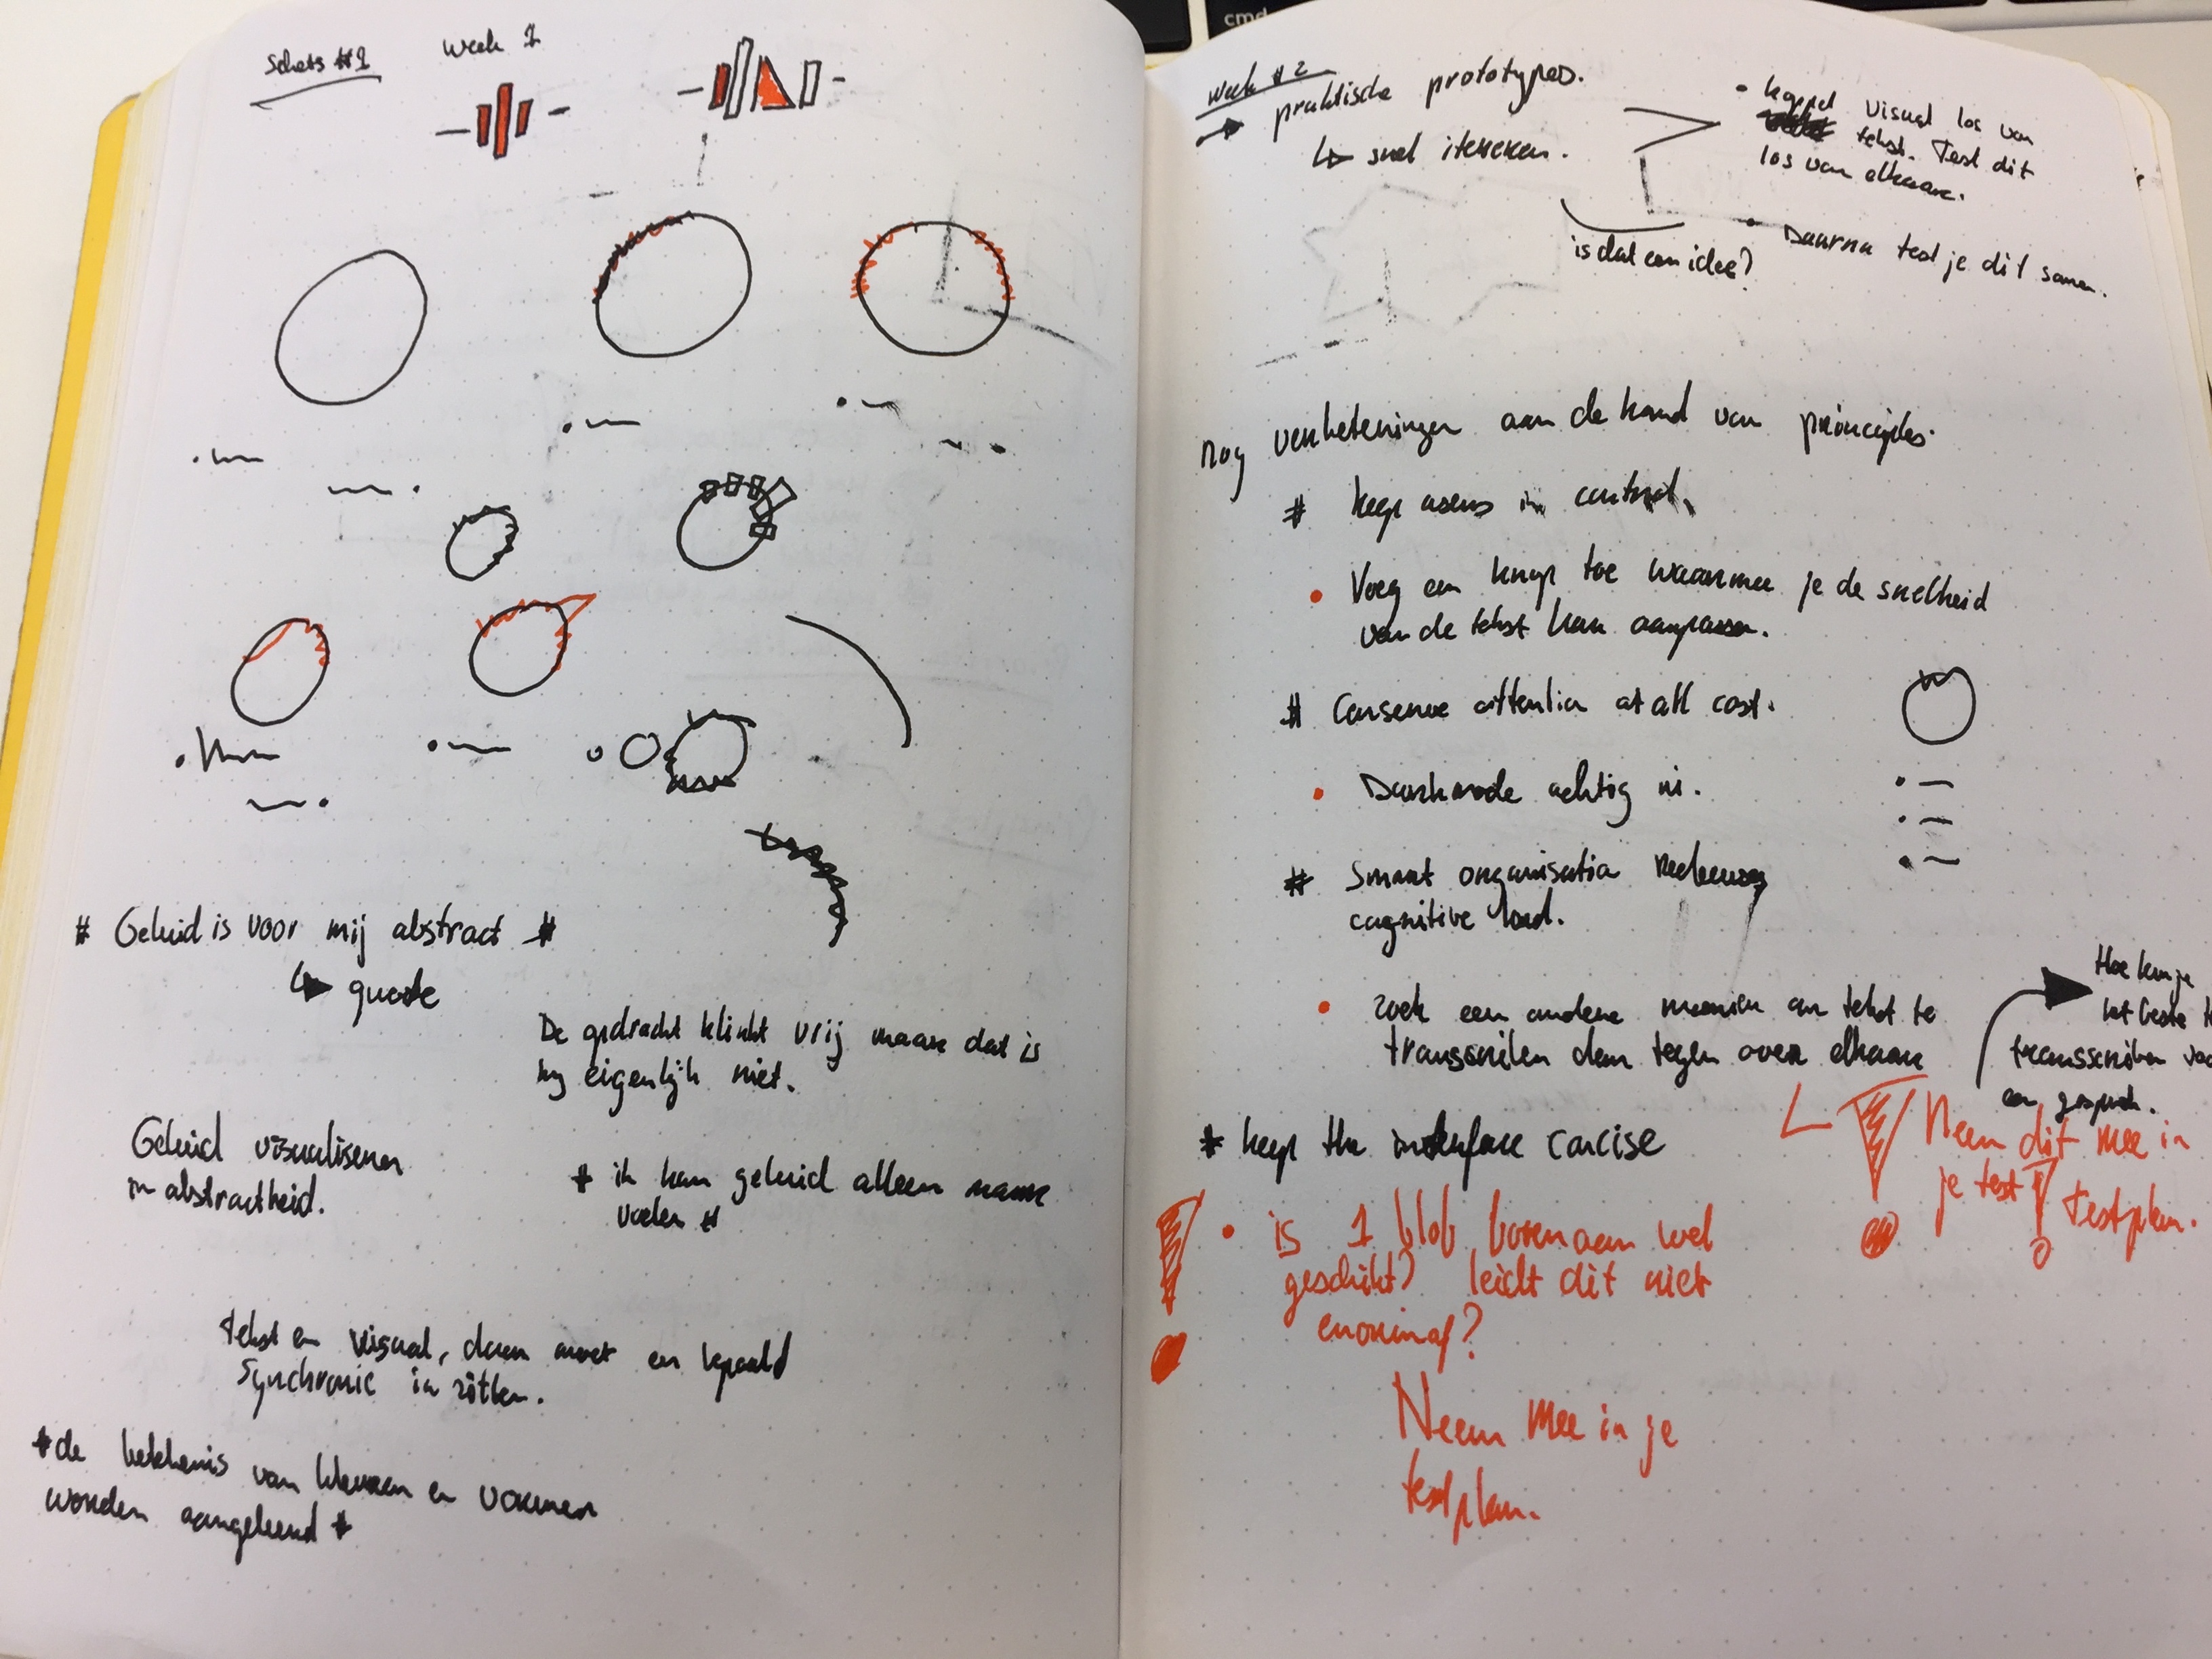 cmd
Schets #1
Week 1
# Geluid is voor mij abstract #
↳ quote
De opdracht klinkt vrij maar dat is
hij eigenlijk niet.
Geluid visualiseren
in abstractheid.
* ik kan geluid alleen maar
voelen #
tekst en visual, daar moet een bepaald
synchronie in zitten.
* de betekenis van kleuren en vormen
worden aangeleerd *
Week #2
→ praktische prototypes.
↳ snel itereren.
• koppel visual los van
tekst. Test dit
los van elkaar.
is dat een idee?
• Daarna test je dit samen.
nog verbeteringen aan de hand van principles.
# keep users in control.
• Voeg een knop toe waarmee je de snelheid
van de tekst kan aanpassen.
# Conserve attention at all cost.
• Darkmode achtig iii.
# Smart organisatie
cognitive load.
• zoek een andere manier om tekst te
transcriben dan tegen over elkaar
Hoe kun je
het beste
transscriben
een gesprek.
Neem dit mee in
je test! Testplan.
* keep the interface concise
! • is 1 blob bovenaan wel
geschikt? leidt dit niet
enorm af?
Neem mee in je
testplan.